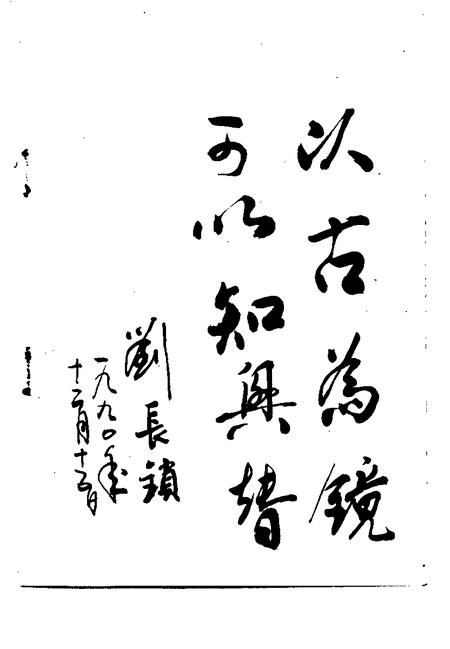 以古為鏡
可以知興替
劉長鎖
一九九〇年
十二月十三日